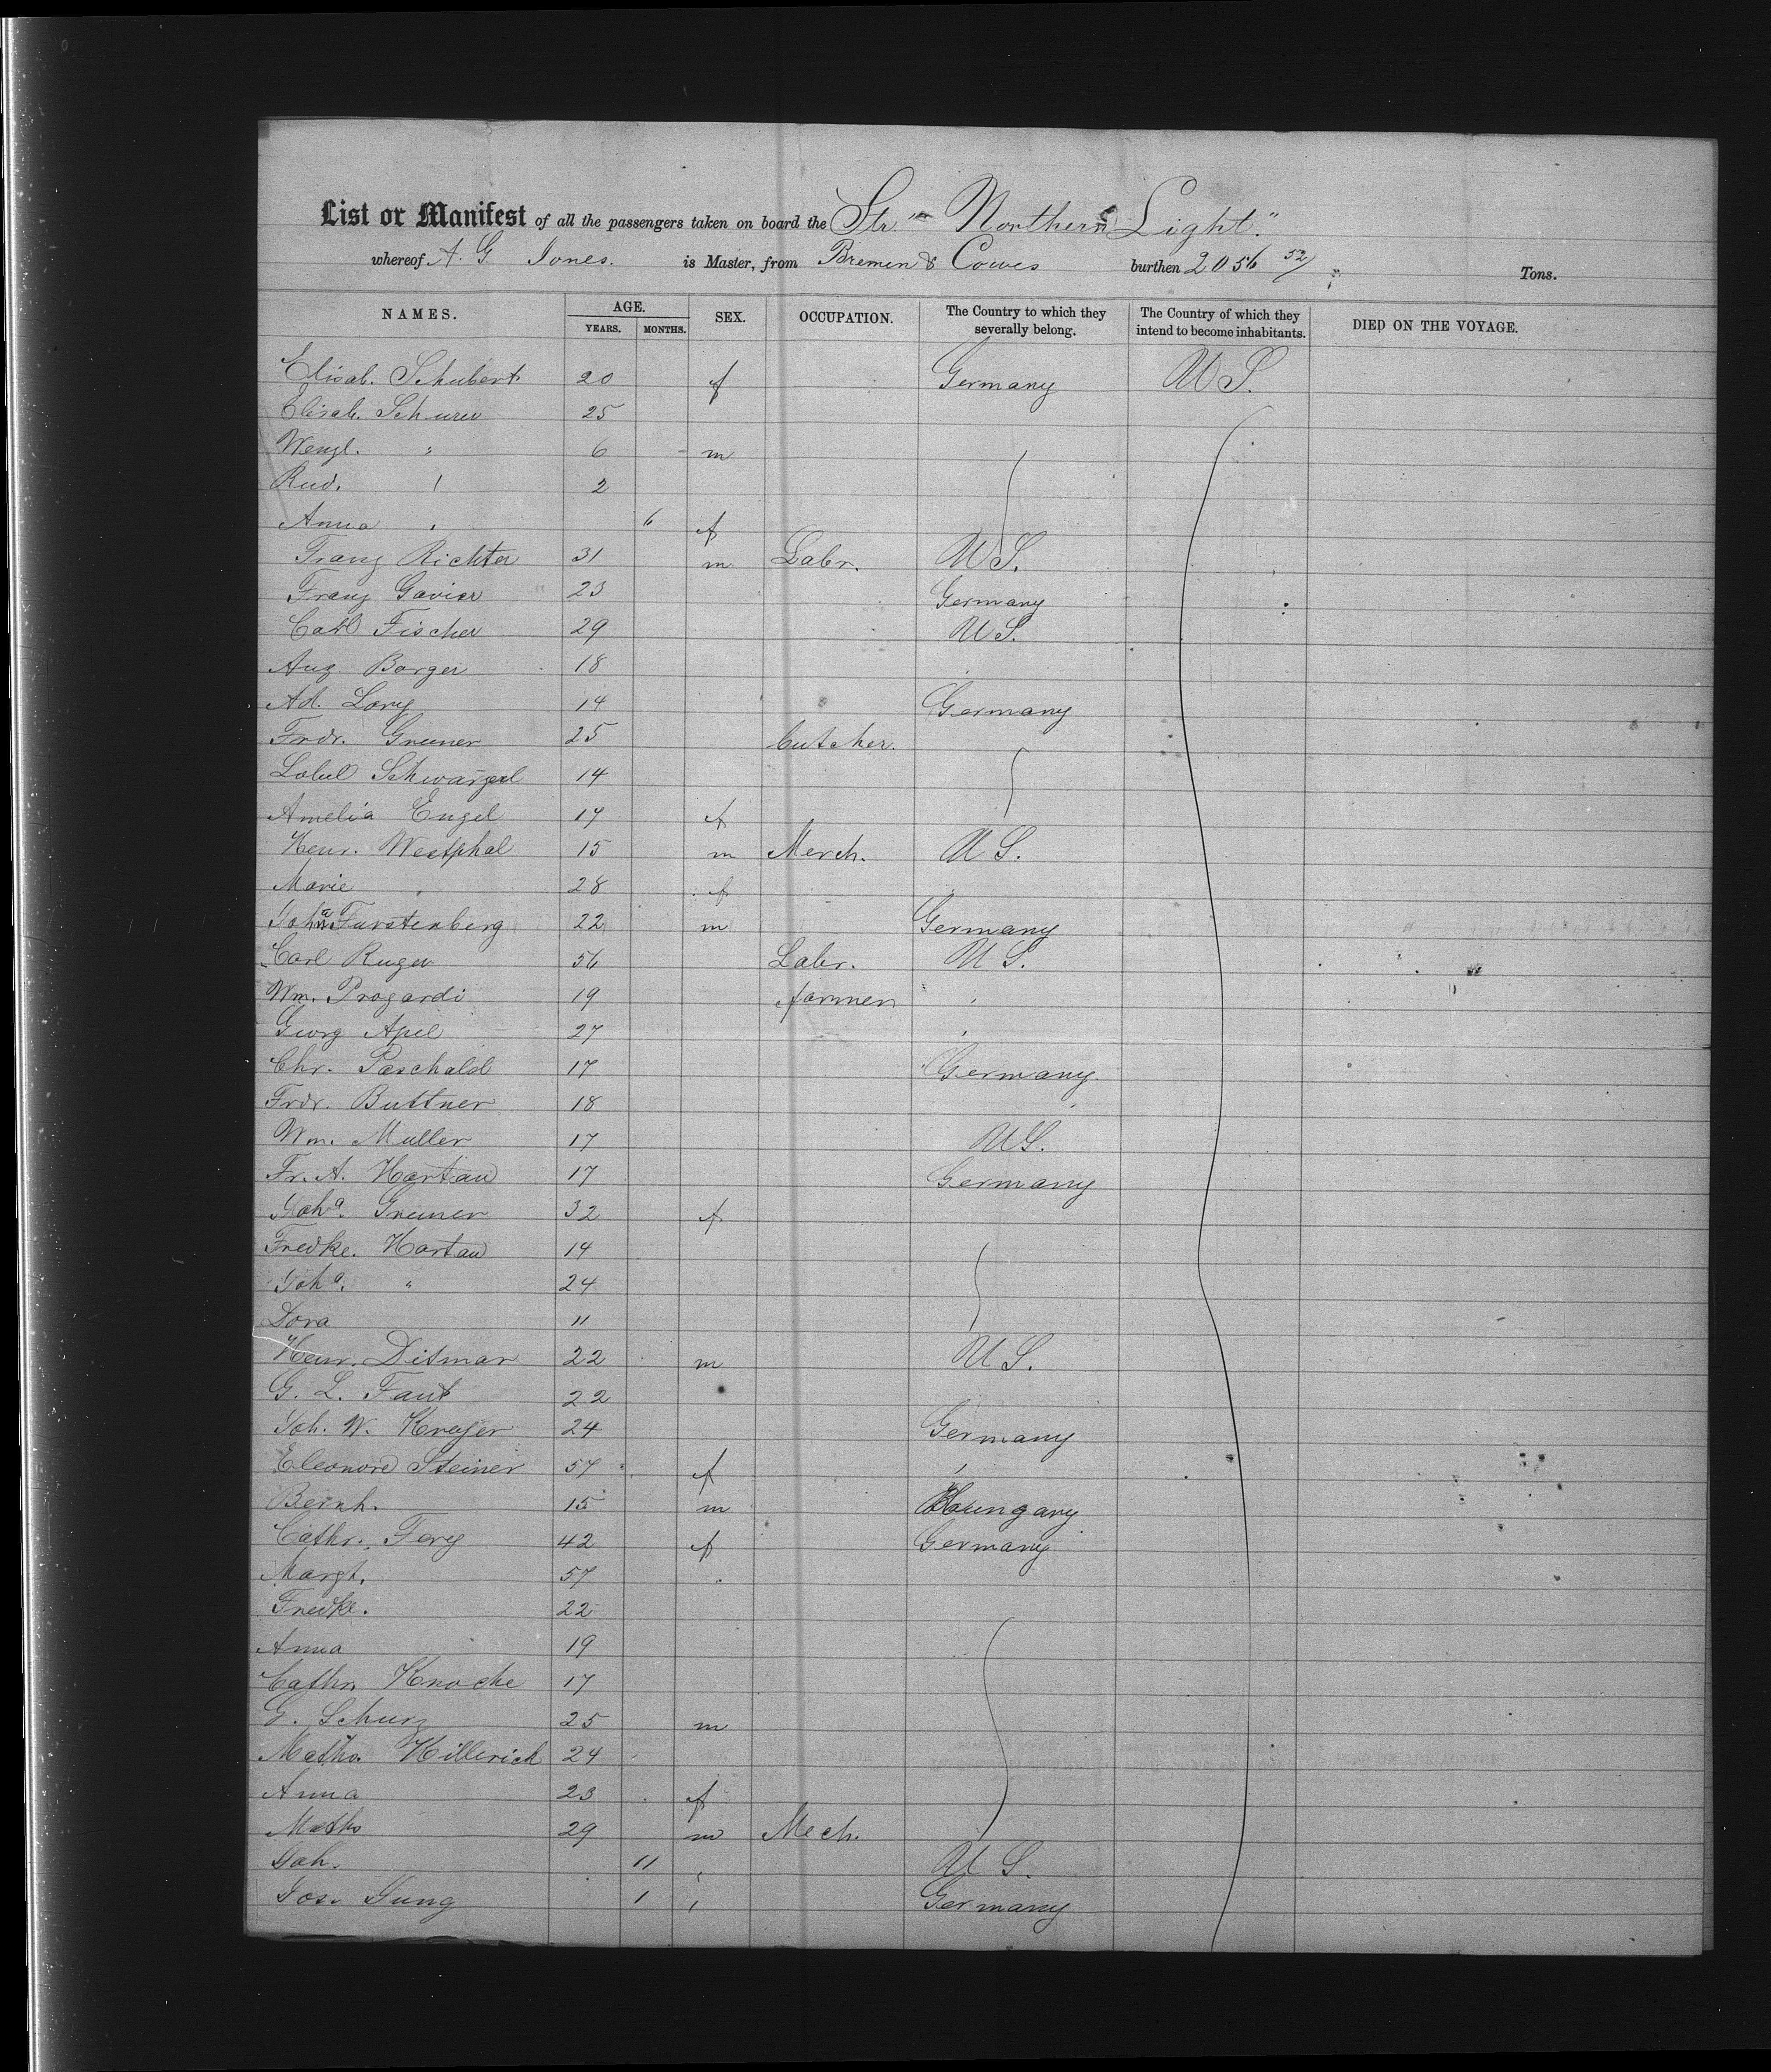 List or Manifest of all the passengers taken on board the Str. "Northern Light."
whereof A. G. Jones. is Master, from Bremen & Cowes burthen 2056 52/ Tons.
NAMES. AGE. YEARS. MONTHS. SEX. OCCUPATION. The Country to which they severally belong. The Country of which they intend to become inhabitants. DIED ON THE VOYAGE.
Elisab. Schubert 20 f Germany U S.
Elisab. Schurer 25
Wenzl. " 6 m
Rud. " 2
Anna " 6 f
Franz Richter 31 m Labr. U S.
Franz 23 Germany
Carl Fischer 29 U S.
Aug. Borger 18
Ad. Lory 14 Germany
Frdr. Greuner 25 butcher.
14
Amelia Engel 17 f
Henr. Westphal 15 m Merch. U S.
Marie " 28 f
Joha Furstenberg 22 m Germany
Carl Ruger 56 Labr. U S.
Wm. Progardi 19 farmer "
Georg Apel 27 "
Chr. Paschald 17 Germany
Frdr. Buttner 18 "
Wm. Muller 17 U S.
Fr. A. Hartau 17 Germany
Joha. Greuner 32 f
Fredke. Hartau 14
Joha. " 24
Dora 11
Henr. Ditmar 22 m U S.
G. L. Faut 22
Joh. W. Kreyer 24 Germany
Eleonore Steiner 57 f "
Bernh. 15 m Hungary
Cathr. Ferg 42 f Germany
Margt. 57
Fredke. 22
Anna 19
Cathr. Knoche 17
G. Schurz 25 m
Maths. Hillerich 24
Anna 23 f
Maths 29 m Mech.
Joh. 11 " U S.
Jos. Jung 1 " Germany